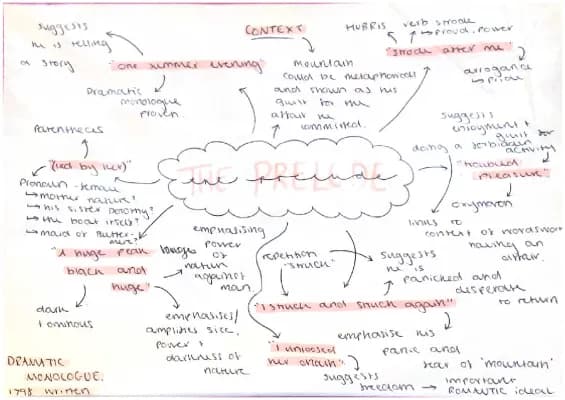 suggests
he is telling
a story
"one summer evening"
Dramatic
monologue
proven.
CONTEXT
mountain
could be metaphorical
and shown as his
guilt for the
affair he
committed.
HUBRIS
verb strode
→ proud, power
"strode after me"
arrogance
→ pride
suggests
enjoyment +
guilt for
doing a forbidden
activity
"troubled
pleasure"
oxymoron
links to
context of wordsworth
having an
affair.
Parenthesis
(led by her)
Pronoun - female
→ mother nature?
→ his sister Dorothy?
→ the boat itself?
→ maid of Butter-
mere?
THE PRELUDE
the prelude
"A huge peak
black and
huge"
dark
+ ominous
emphasising
power
of
nature
against
man.
emphasises/
amplifies size,
power +
darkness of
nature
repetition
"struck"
"I struck and struck again"
suggests
he is
panicked and
desperate
to return
emphasise his
panic and
fear of 'mountain'
"I unloosed
her chain"
suggests
freedom → important
ROMANTIC ideal
DRAMATIC
MONOLOGUE.
1798 written